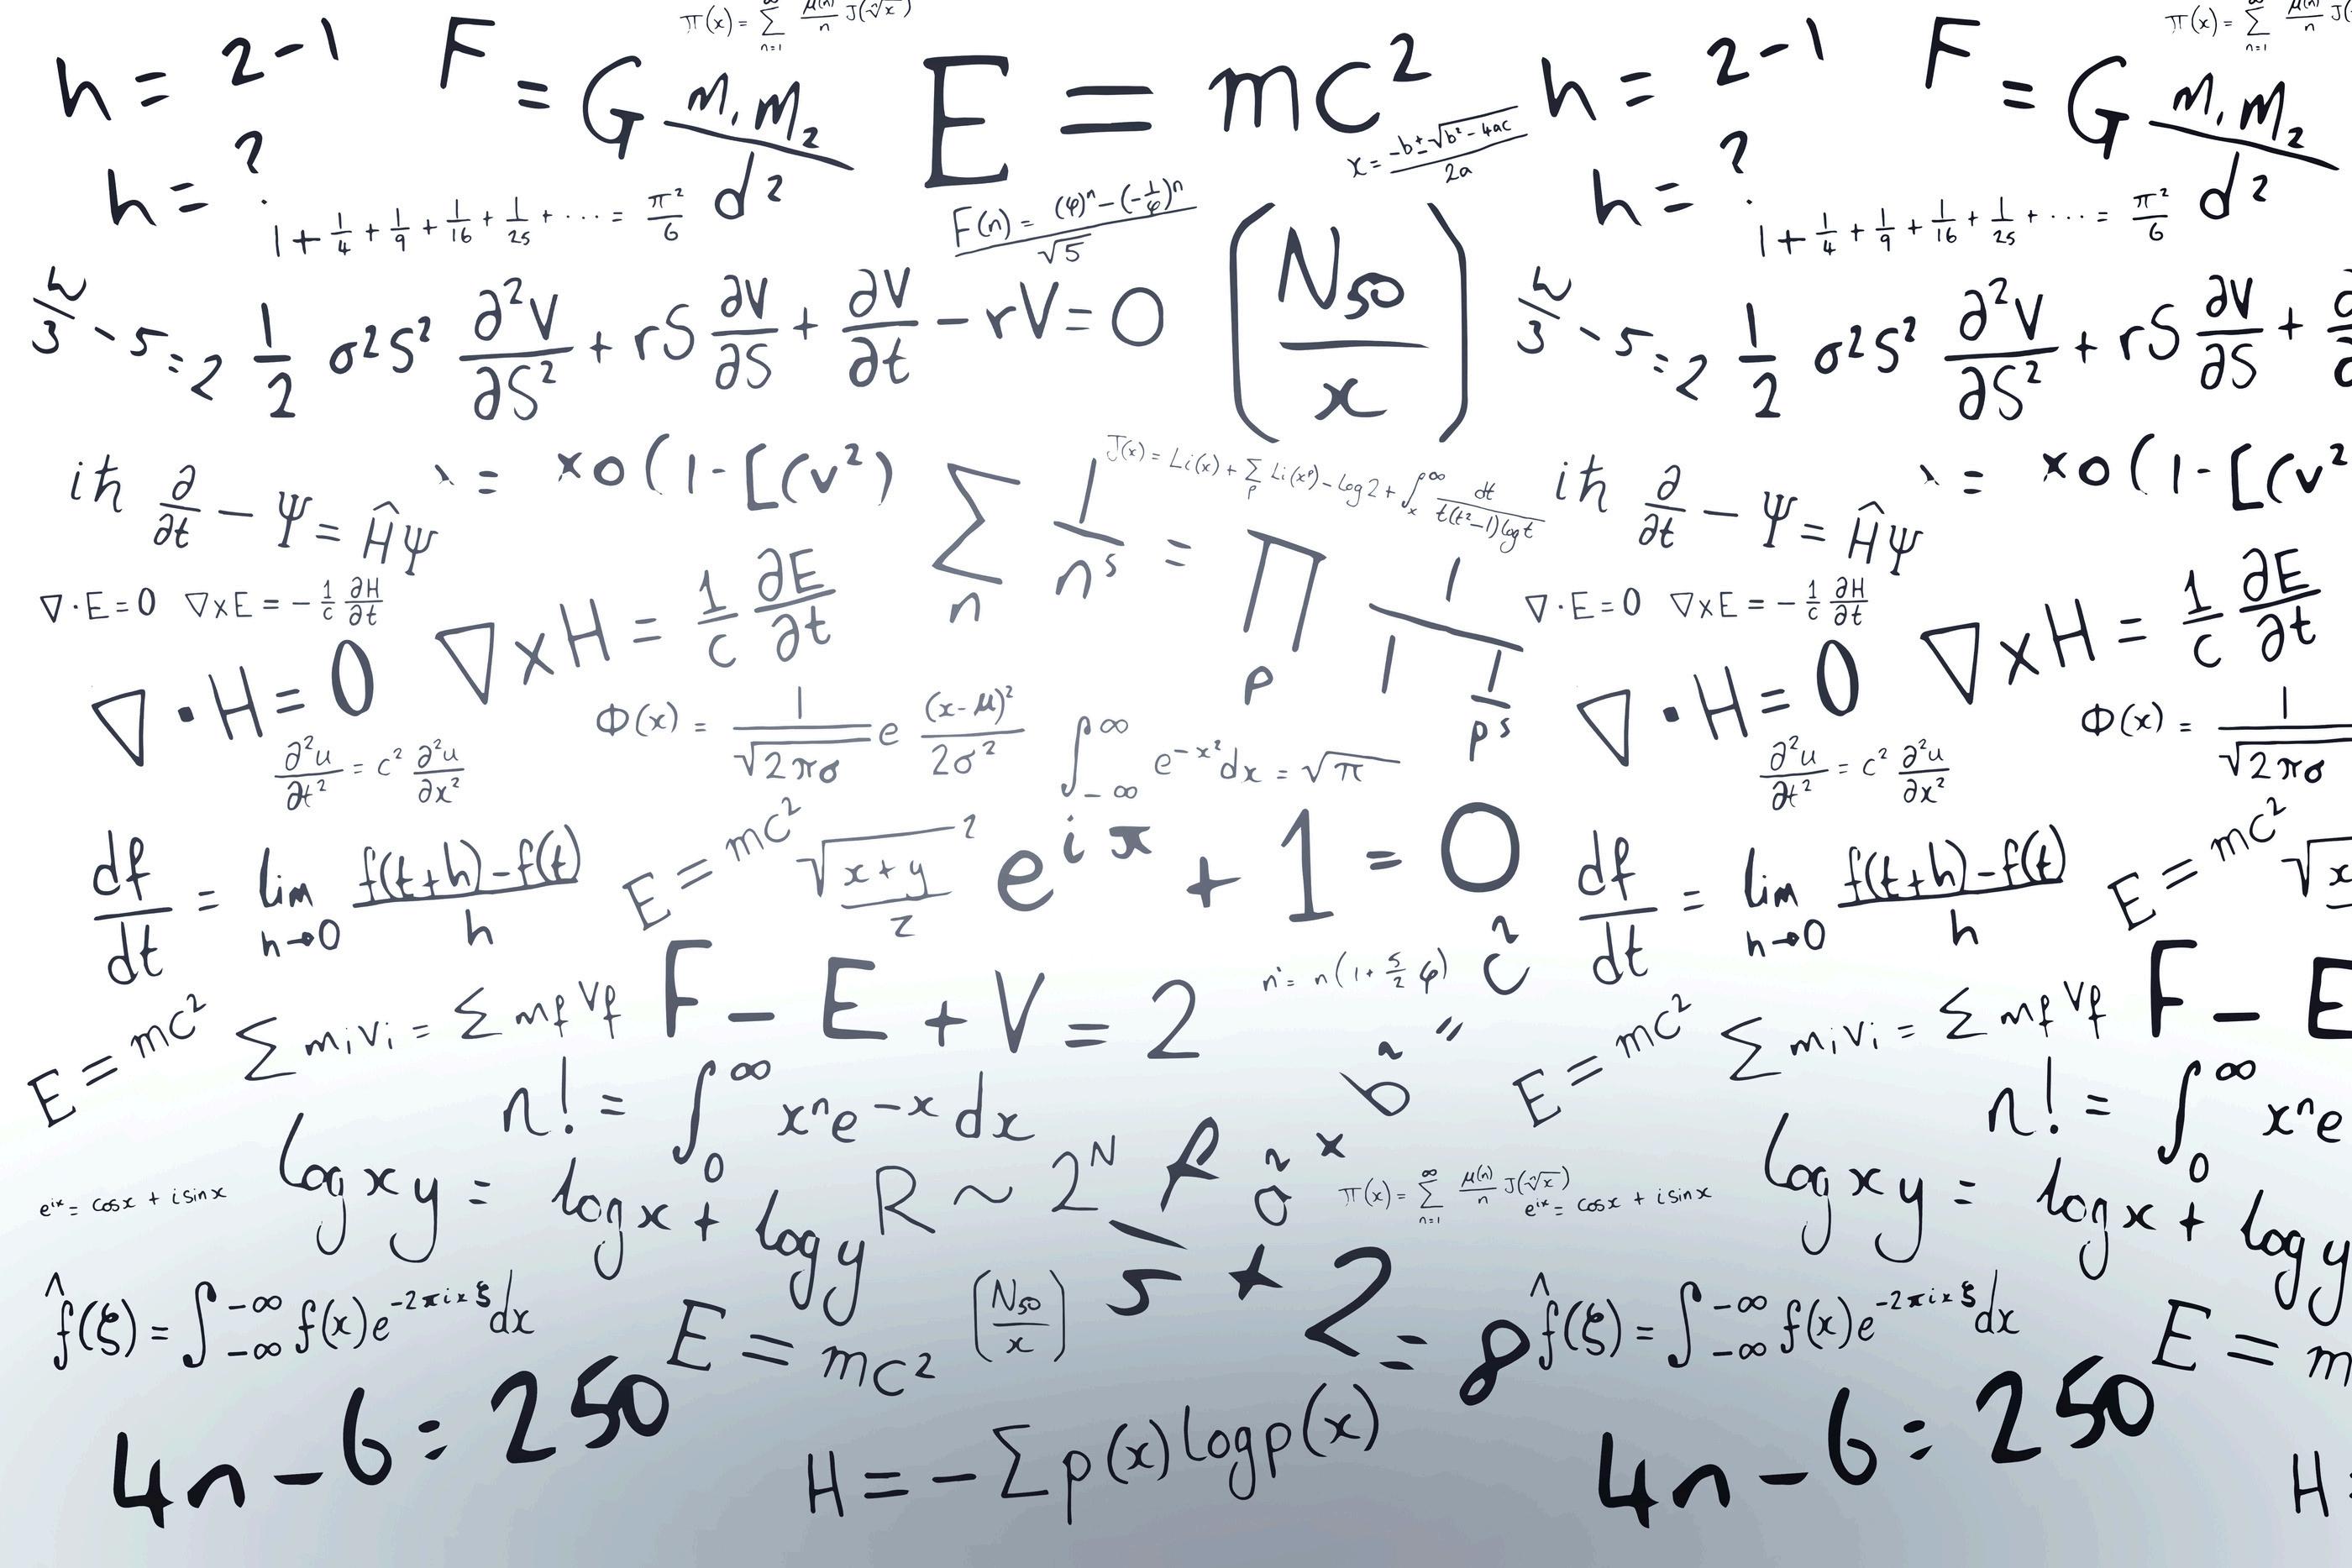 π(x) = ∑ n=1 ∞ μ(n)/n J(ⁿ√x)
π(x) = ∑ n=1 ∞ μ(n)/n J(
h = 2-1
F = G m₁m₂/d²
E = mc²
h = 2-1
F = G m₁m₂/d²
h = ?
x = -b±√b²-4ac / 2a
h = ?
1 + 1/4 + 1/9 + 1/16 + 1/25 + ... = π²/6
F(n) = (φ)ⁿ-(-1/φ)ⁿ / √5
(N₅₀/x)
1 + 1/4 + 1/9 + 1/16 + 1/25 + ... = π²/6
h/3 - 5 = 2
1/2 σ²S² ∂²V/∂S² + rS ∂V/∂S + ∂V/∂t - rV = 0
h/3 - 5 = 2
1/2 σ²S² ∂²V/∂S² + rS ∂V/∂S +
iħ ∂/∂t - Ψ = ĤΨ
= xo(1-[(v²)
J(x) = Li(x) + ∑p Li(x^p) - log2 + ∫x ∞ dt / t(t²-1)logt
iħ ∂/∂t - Ψ = ĤΨ
= xo(1-[(v²
∑n 1/n^s = ∏p 1 / 1 1/p^s
∇·E=0 ∇xE = - 1/c ∂H/∂t
∇xH = 1/c ∂E/∂t
∇·E=0 ∇xE = - 1/c ∂H/∂t
∇xH = 1/c ∂E/∂t
∇·H = 0
Φ(x) = 1/√2πσ e (x-μ)²/2σ²
∫-∞ ∞ e^-x² dx = √π
∇·H = 0
Φ(x) = 1/√2πσ
∂²u/∂t² = c² ∂²u/∂x²
∂²u/∂t² = c² ∂²u/∂x²
df/dt = lim h→0 f(t+h)-f(t)/h
E = mc²
√x+y² / z
e^iπ + 1 = 0
df/dt = lim h→0 f(t+h)-f(t)/h
E = mc²
√x
E = mc²
∑mᵢvᵢ = ∑mfVf
F - E + V = 2
n' = n(1+ 5/2 φ)
a² x b² = c²
E = mc²
∑mᵢvᵢ = ∑mfVf
F - E
n! = ∫0 ∞ xⁿe^-x dx
n! = ∫0 ∞ xⁿe
e^ix = cosx + isinx
logxy = logx + logy
R ~ 2^N
π(x) = ∑ n=1 ∞ μ(n)/n J(ⁿ√x)
e^ix = cosx + isinx
logxy = logx + logy
f/5 + 2 = 8
f̂(ξ) = ∫-∞ -∞ f(x)e^-2πixξ dx
E = mc²
(N₅₀/x)
f̂(ξ) = ∫-∞ -∞ f(x)e^-2πixξ dx
E = m
4n - 6 = 250
H = -∑p(x)logp(x)
4n - 6 = 250
H